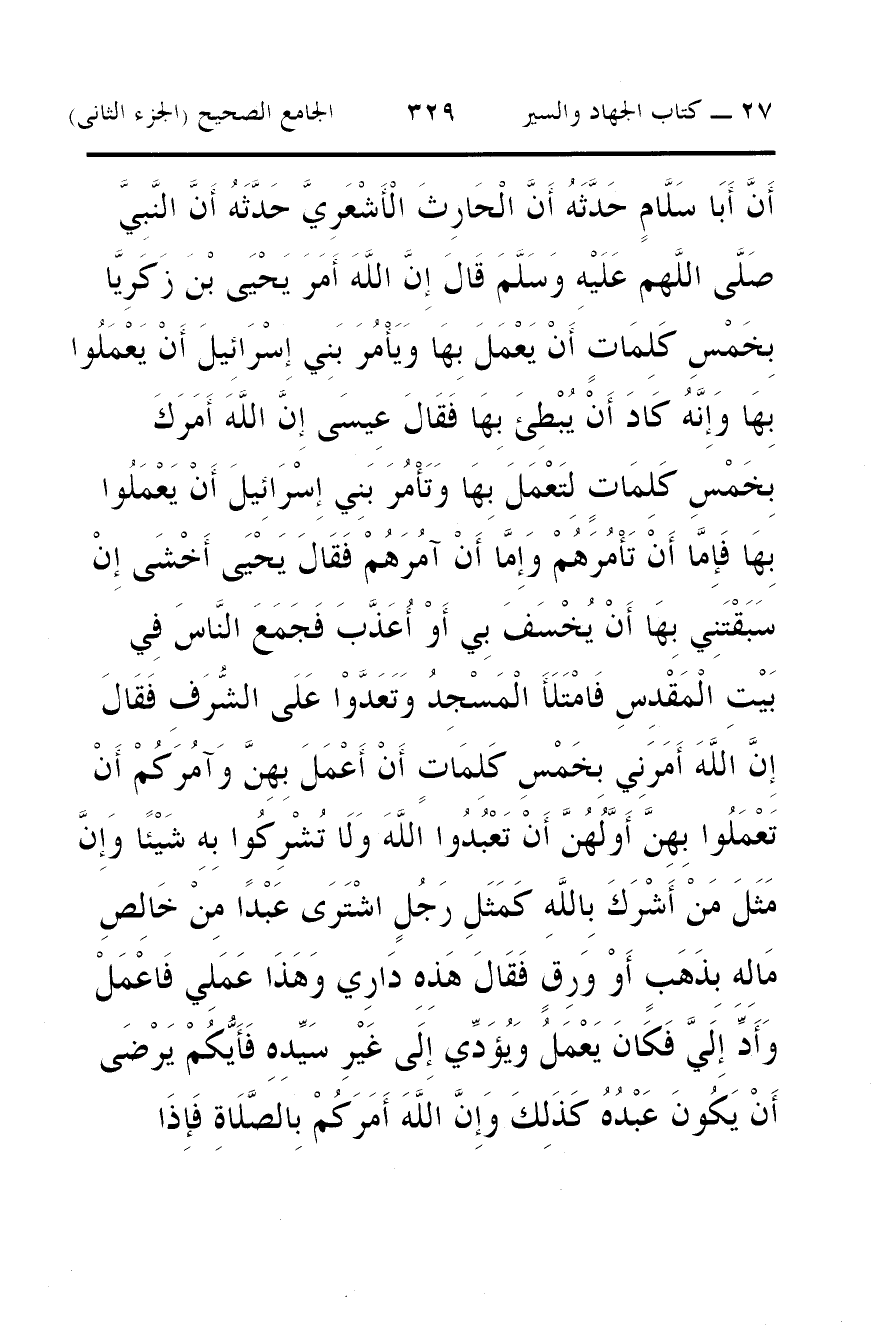 ٢٧ ــ كتاب الجهاد والسير ٣٢٩ الجامع الصحيح (الجزء الثانى)
أَنَّ أَبَا سَلَّامٍ حَدَّثَهُ أَنَّ الْحَارِثَ الْأَشْعَرِيَّ حَدَّثَهُ أَنَّ النَّبِيَّ
صَلَّى اللَّهم عَلَيْهِ وَسَلَّمَ قَالَ إِنَّ اللَّهَ أَمَرَ يَحْيَى بْنَ زَكَرِيَّا
بِخَمْسِ كَلِمَاتٍ أَنْ يَعْمَلَ بِهَا وَيَأْمُرَ بَنِي إِسْرَائِيلَ أَنْ يَعْمَلُوا
بِهَا وَإِنَّهُ كَادَ أَنْ يُبْطِئَ بِهَا فَقَالَ عِيسَى إِنَّ اللَّهَ أَمَرَكَ
بِخَمْسِ كَلِمَاتٍ لِتَعْمَلَ بِهَا وَتَأْمُرَ بَنِي إِسْرَائِيلَ أَنْ يَعْمَلُوا
بِهَا فَإِمَّا أَنْ تَأْمُرَهُمْ وَإِمَّا أَنْ آمُرَهُمْ فَقَالَ يَحْيَى أَخْشَى إِنْ
سَبَقْتَنِي بِهَا أَنْ يُخْسَفَ بِي أَوْ أُعَذَّبَ فَجَمَعَ النَّاسَ فِي
بَيْتِ الْمَقْدِسِ فَامْتَلَأَ الْمَسْجِدُ وَتَعَدَّوْا عَلَى الشُّرَفِ فَقَالَ
إِنَّ اللَّهَ أَمَرَنِي بِخَمْسِ كَلِمَاتٍ أَنْ أَعْمَلَ بِهِنَّ وَآمُرَكُمْ أَنْ
تَعْمَلُوا بِهِنَّ أَوَّلُهُنَّ أَنْ تَعْبُدُوا اللَّهَ وَلَا تُشْرِكُوا بِهِ شَيْئًا وَإِنَّ
مَثَلَ مَنْ أَشْرَكَ بِاللَّهِ كَمَثَلِ رَجُلٍ اشْتَرَى عَبْدًا مِنْ خَالِصِ
مَالِهِ بِذَهَبٍ أَوْ وَرِقٍ فَقَالَ هَذِهِ دَارِي وَهَذَا عَمَلِي فَاعْمَلْ
وَأَدِّ إِلَيَّ فَكَانَ يَعْمَلُ وَيُؤَدِّي إِلَى غَيْرِ سَيِّدِهِ فَأَيُّكُمْ يَرْضَى
أَنْ يَكُونَ عَبْدُهُ كَذَلِكَ وَإِنَّ اللَّهَ أَمَرَكُمْ بِالصَّلَاةِ فَإِذَا